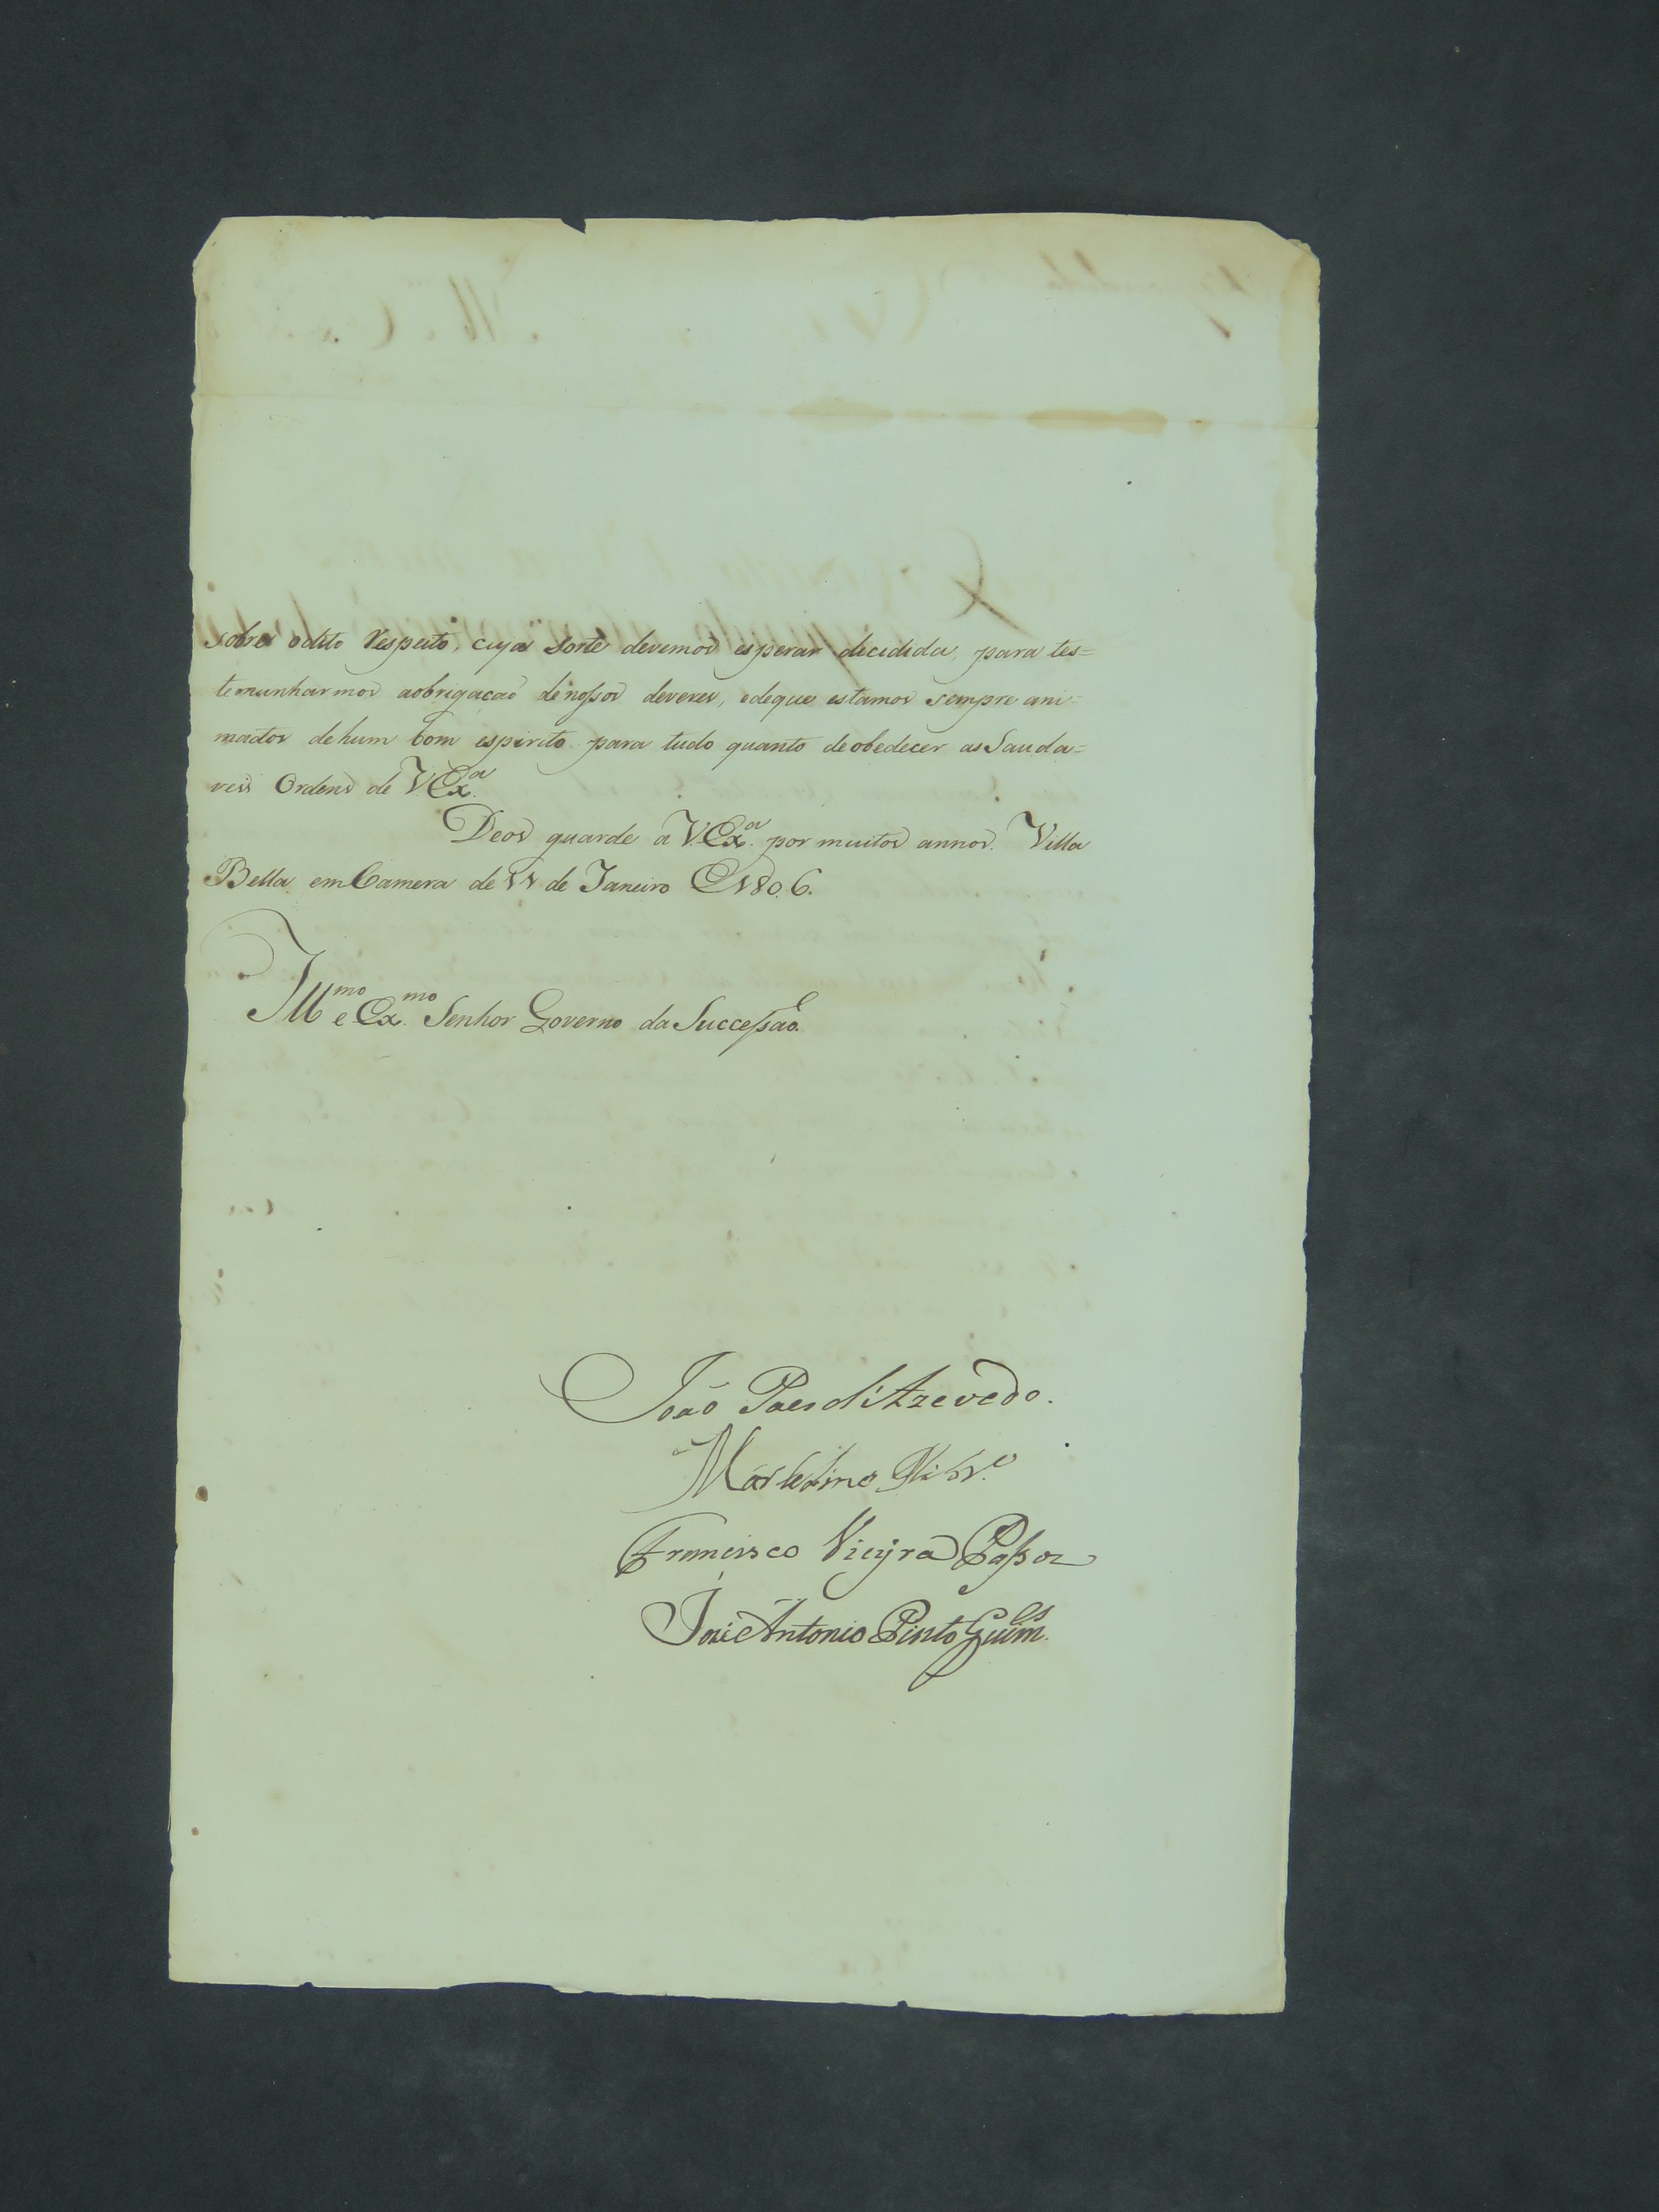 sobre odito Respeito, cuja sorte devemos esperar decidida, para tes=
temunharmos aobrigaçaõ denossos deveres, edeque estamos sempre ani=
mados dehum bom espirito para tudo quanto deobedecer as Sauda=
veis Ordens de V.Exª
Deos guarde a V.Exª por muitos annos. Villa
Bella em Camera de 11 de Janeiro de 1806.
Illmo e Exmo Senhor Governo da Successaõ
João Paes d'Azevedo.
Francisco Vieyra Passos
José Antonio Pinto Guimes